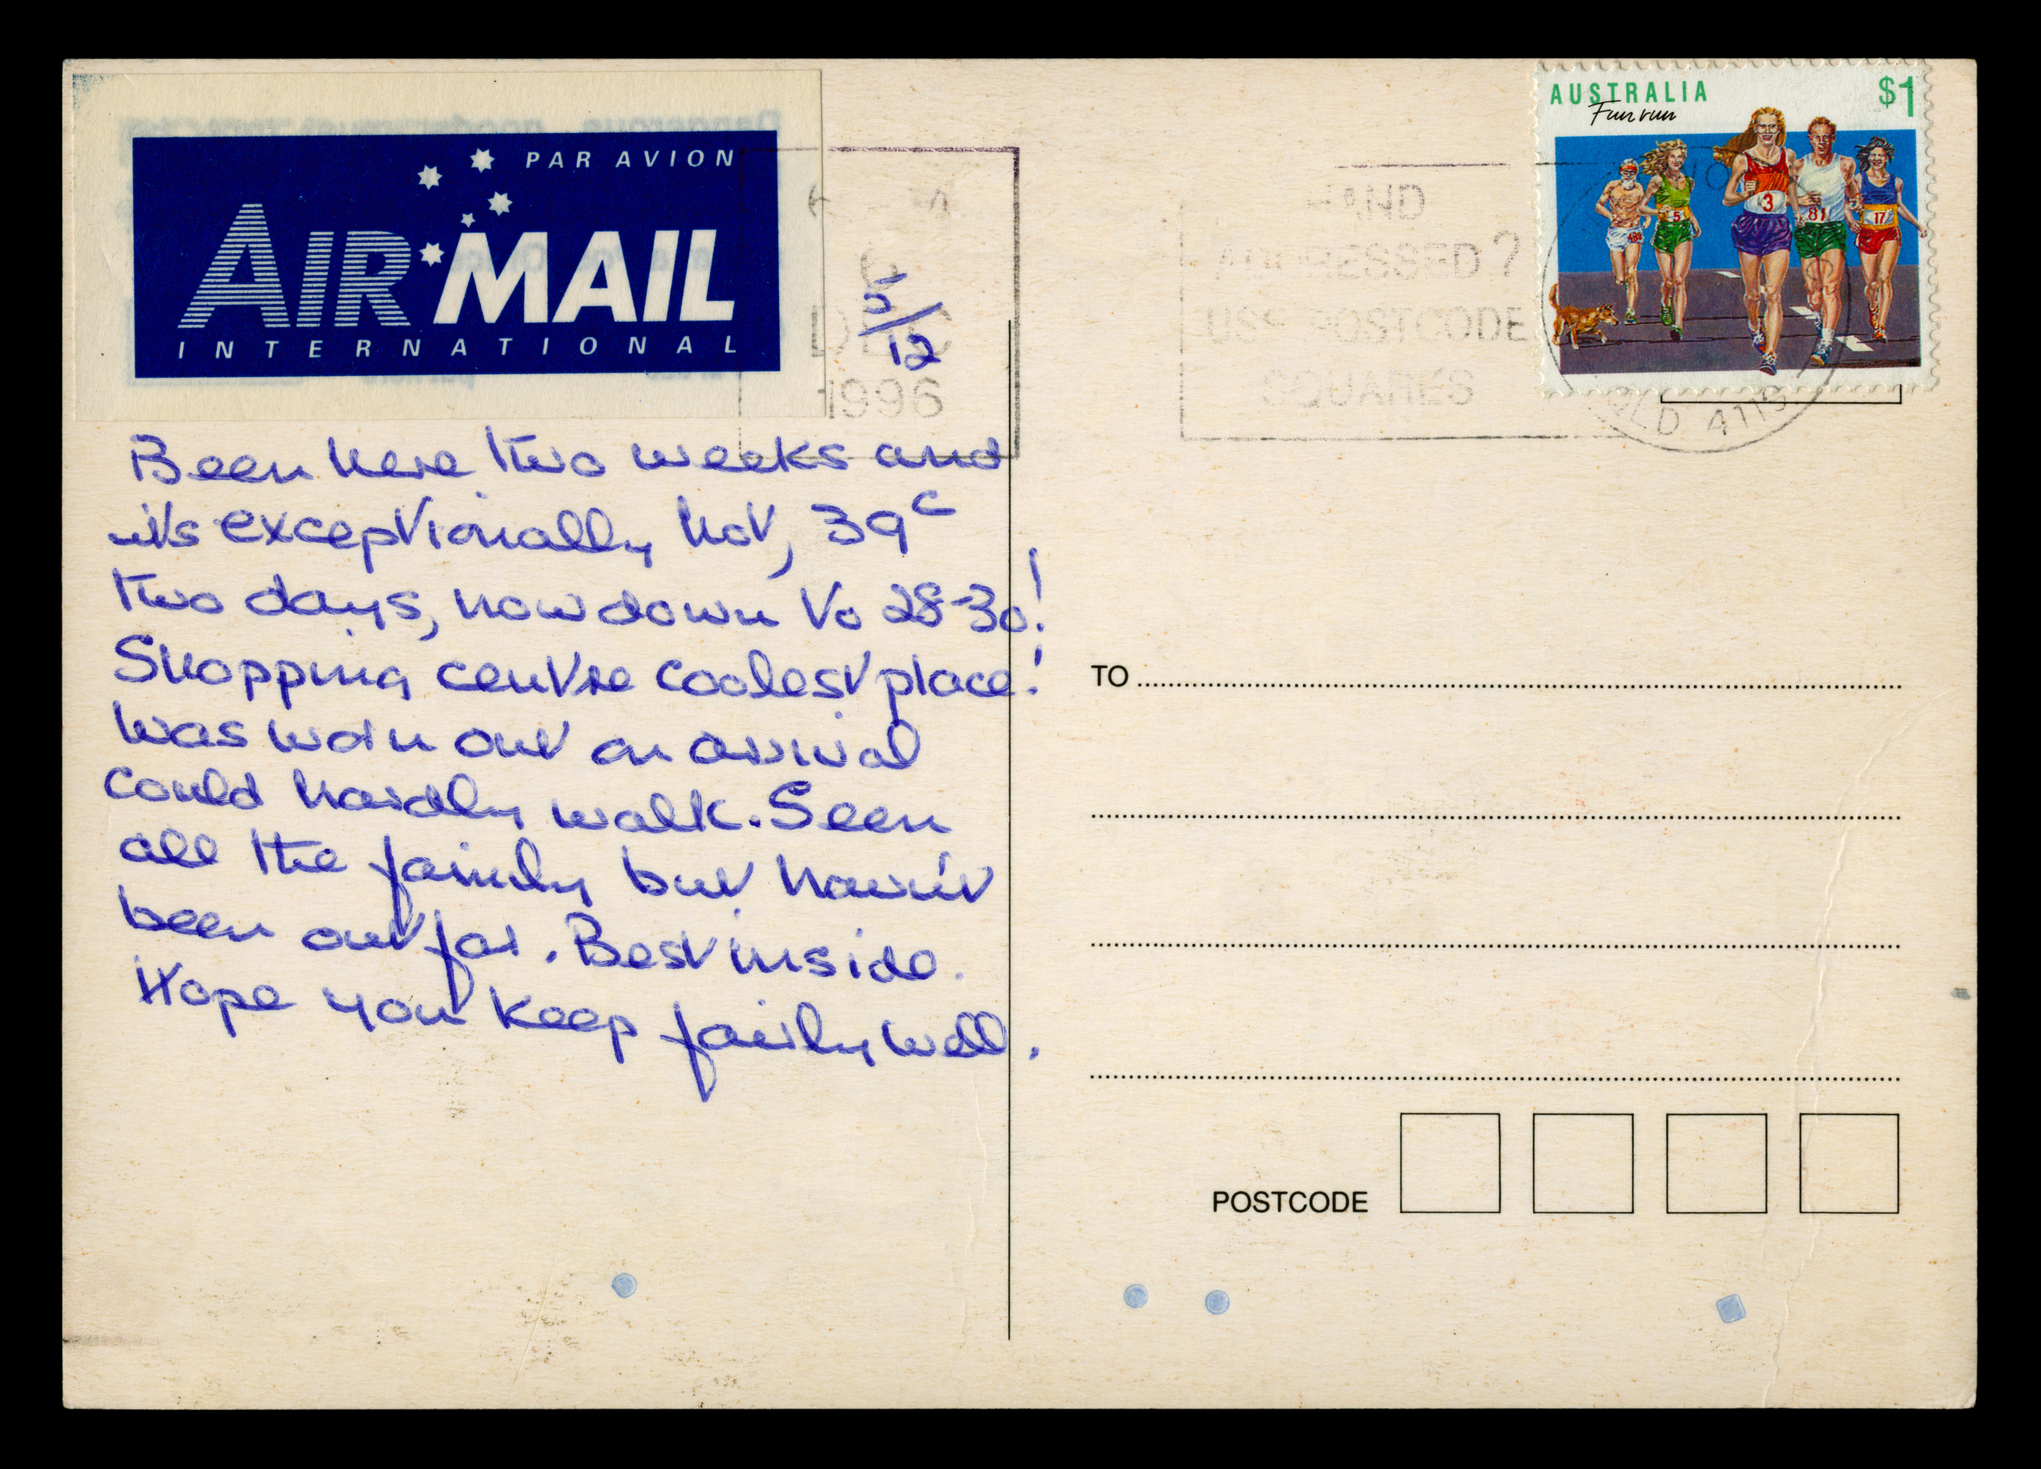 PAR AVION
AIR MAIL
INTERNATIONAL
DEC
1996
5/12
HAND
ADDRESSED?
USE POSTCODE
SQUARES
QLD 4113
AUSTRALIA $1
Fun run
3
5
81
17
Been here two weeks and
it's exceptionally hot, 39c
two days, now down to 28-30!
Shopping centre coolest place!
was worn out on arrival
could hardly walk. Seen
all the family but havn't
been out far. Best inside.
Hope you keep fairly well.
TO
POSTCODE